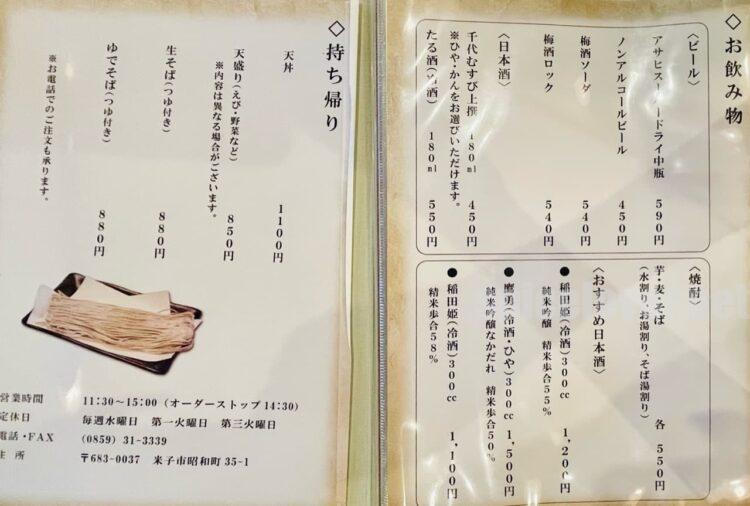 ◇お飲み物
〈ビール〉
アサヒスーパードライ中瓶 590円
ノンアルコールビール 450円
梅酒ソーダ 540円
梅酒ロック 540円
〈日本酒〉
千代むすび上撰 180ml 450円
※ひや・かんをお選びいただけます。
たる酒(冷酒) 180ml 550円
〈焼酎〉
芋・麦・そば 各 550円
(水割り、お湯割り、そば湯割り)
〈おすすめ日本酒〉
●稲田姫(冷酒)300cc 1,200円
純米吟醸 精米歩合55%
●鷹勇(冷酒・ひや)300cc 1,500円
純米吟醸なかだれ 精米歩合50%
●稲田姫(冷酒)300cc 1,100円
精米歩合58%
◇持ち帰り
天丼 1100円
天盛り(えび・野菜など) 850円
※内容は異なる場合がございます。
生そば(つゆ付き) 880円
ゆでそば(つゆ付き) 880円
※お電話でのご注文も承ります。
営業時間 11:30〜15:00(オーダーストップ14:30)
定休日 毎週水曜日 第一火曜日 第三火曜日
電話・FAX (0859)31-3339
住所 〒683-0037 米子市昭和町35-1